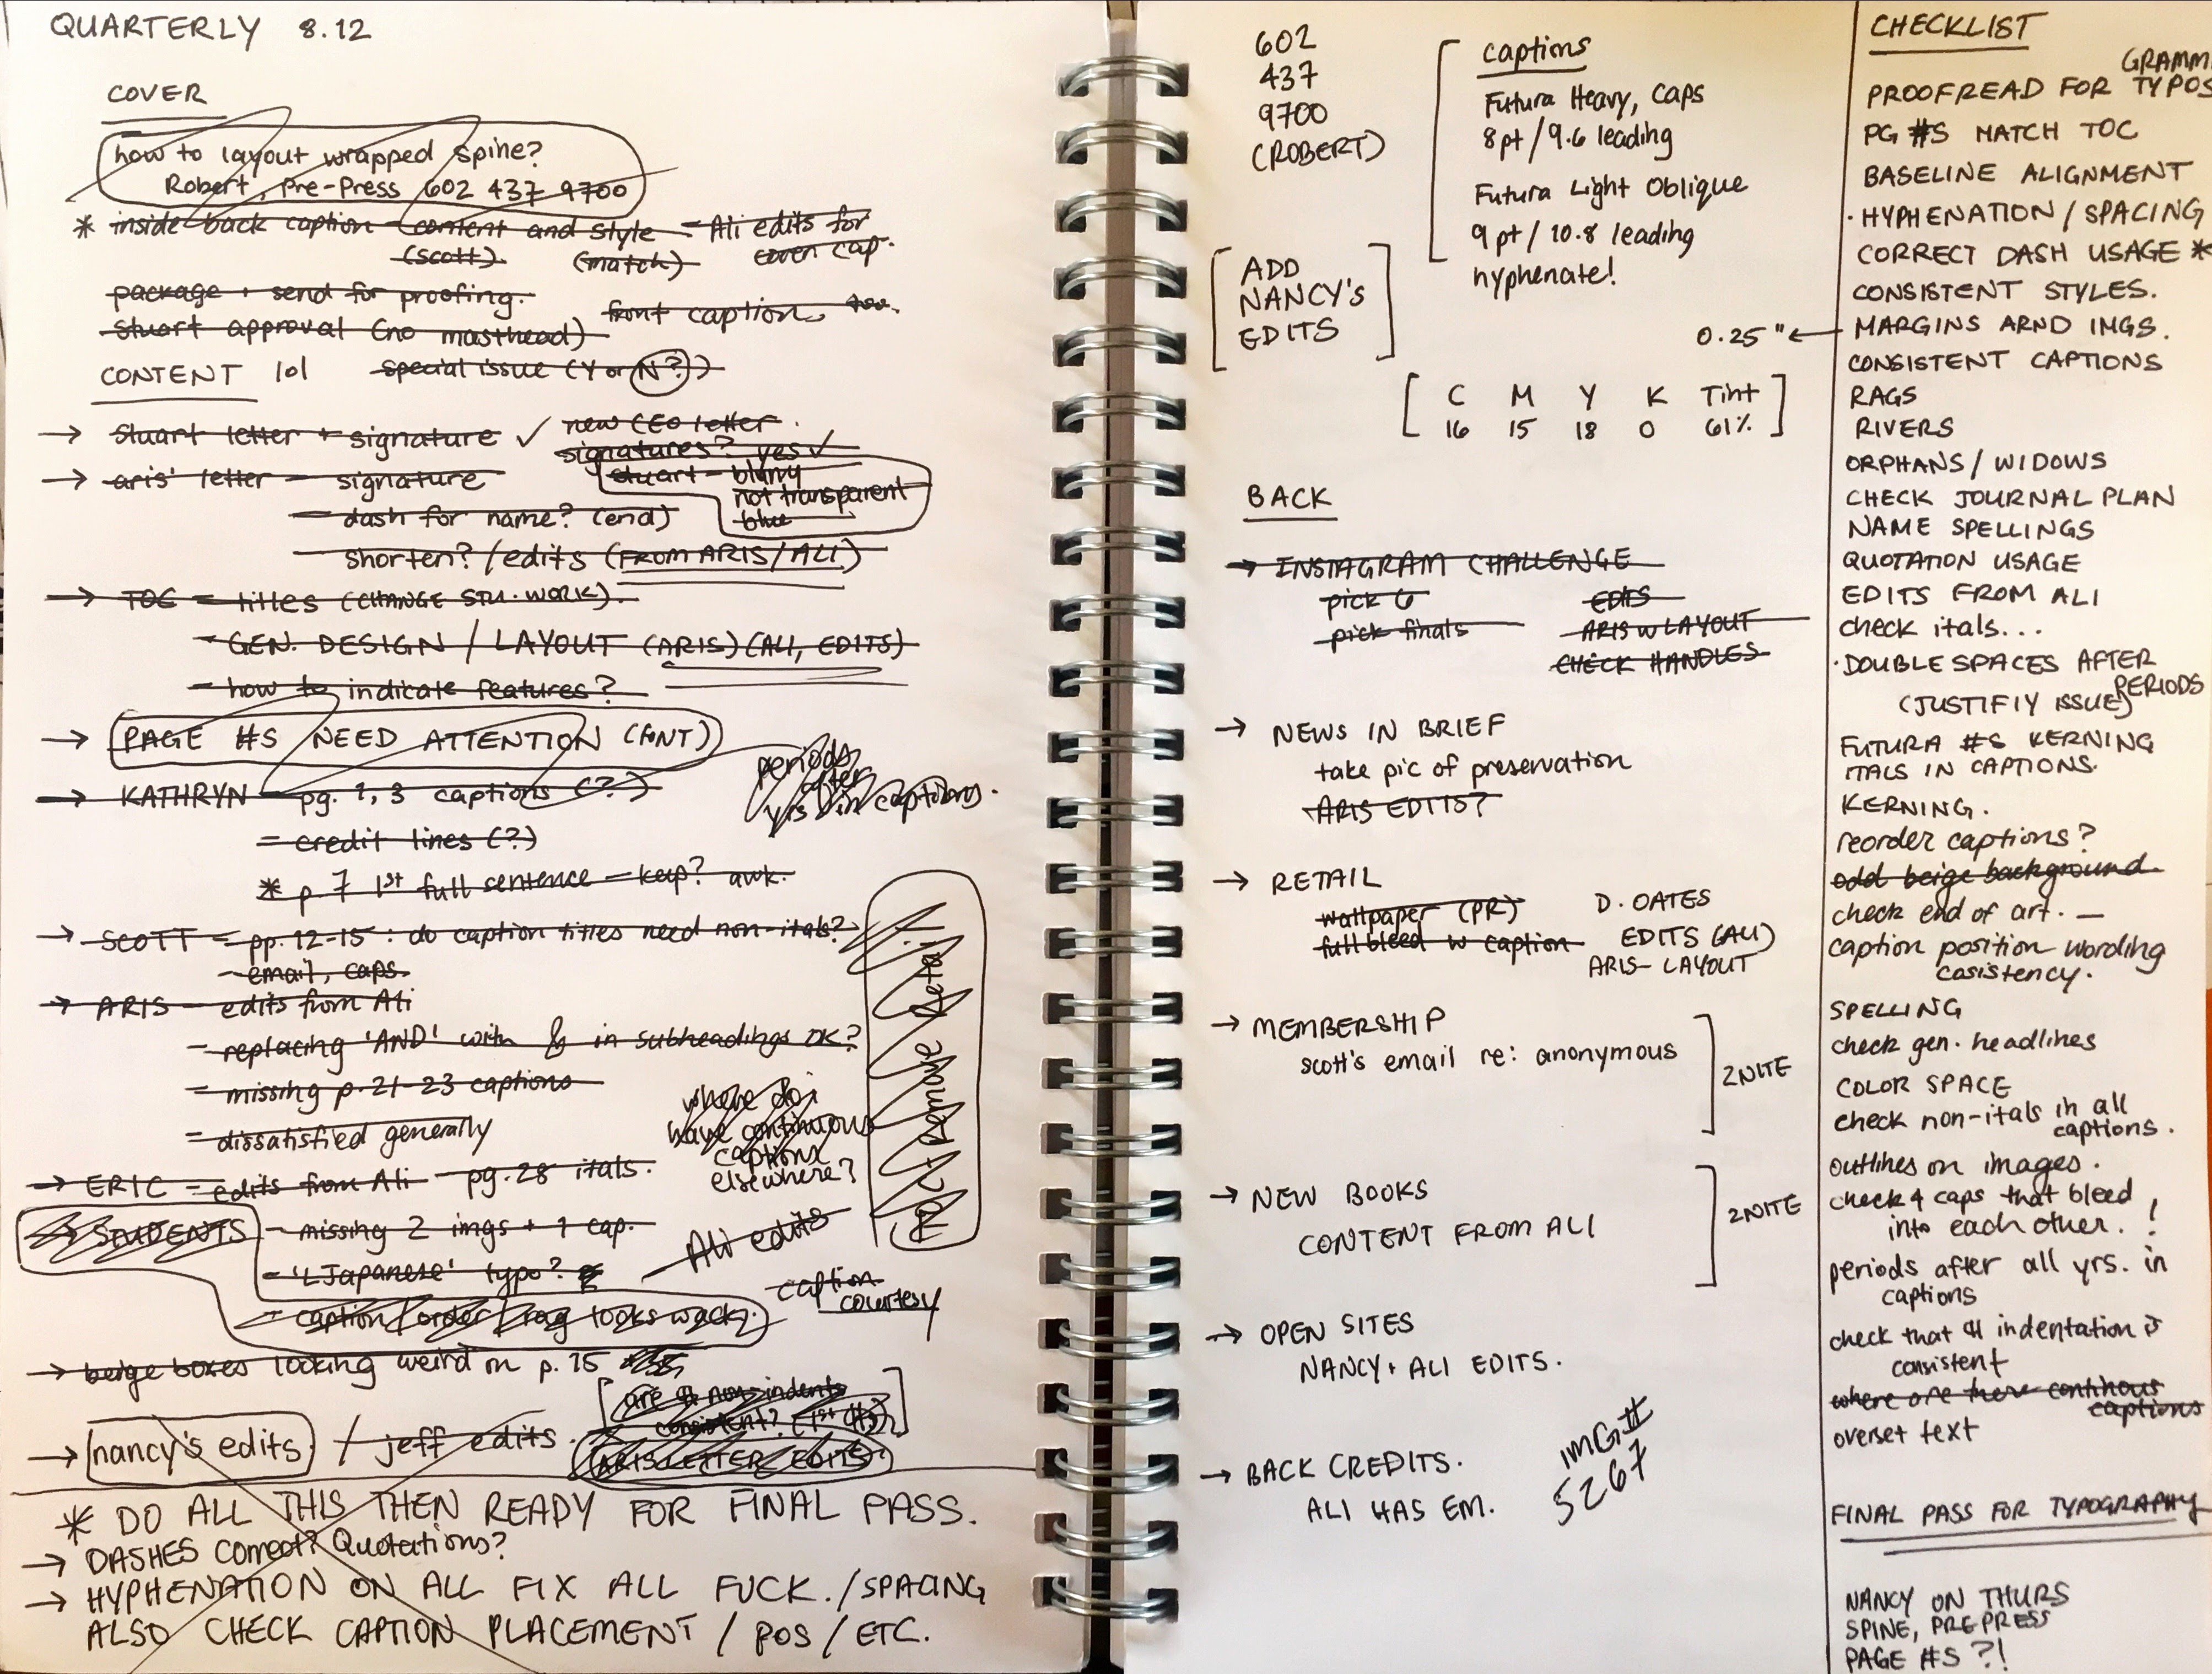 QUARTERLY 8.12
COVER
how to layout wrapped spine?
Robert, Pre-Press 602 437 9700
* inside back caption - content and style - Ali edits for
(scott) (match) cover cap.
package + send for proofing.
front caption too.
stuart approval (no masthead)
CONTENT 101 special issue (Y or N?)
→ Stuart letter + signature ✓ new CEO letter
signatures? yes ✓
→ aris' letter - signature
stuart - blurry
not transparent
blue
- dash for name? (end)
- shorten? / edits (FROM ARIS/ALI)
→ TOC - titles (CHANGE STU. WORK).
- GEN. DESIGN / LAYOUT (ARIS) (ALI, EDITS)
- how to indicate features?
→ PAGE #S NEED ATTENTION (FONT)
periods
after
yrs in captions.
→ KATHRYN - pg. 1, 3 captions (?)
- credit lines (?)
* p. 7 1st full sentence - keep? awk.
→ SCOTT - pp. 12-15 : do caption titles need non-itals?
- email, caps.
→ ARIS - edits from Ali
- replacing 'AND' with & in subheadings OK?
- missing p. 21-23 captions
- dissatisfied generally
where do i
have continuous
captions
elsewhere?
→ ERIC - edits from Ali - pg. 28 itals.
→ STUDENTS - missing 2 imgs + 1 cap.
- Ali edits
- 'LJapanese' typo?
- caption courtesy
- caption / order / rag looks wack.
→ beige boxes looking weird on p. 15
are ¶ non-indents
consistent? (1st ¶s)
→ nancy's edits / jeff edits.
ARIS LETTER EDITS
* DO ALL THIS THEN READY FOR FINAL PASS.
→ DASHES correct? Quotations?
→ HYPHENATION ON ALL FIX ALL FUCK. / SPACING
ALSO CHECK CAPTION PLACEMENT / POS / ETC.
602
437
9700
(ROBERT)
captions
Futura Heavy, caps
8pt / 9.6 leading
Futura Light Oblique
9pt / 10.8 leading
hyphenate!
ADD
NANCY'S
EDITS
0.25" ←
C M Y K Tint
16 15 18 0 61%
BACK
→ INSTAGRAM CHALLENGE
pick 6 EDITS
pick finals ARIS w LAYOUT
CHECK HANDLES
→ NEWS IN BRIEF
take pic of preservation
ARIS EDITS?
→ RETAIL
wallpaper (PR) D. OATES
full bleed w caption EDITS (ALI)
ARIS - LAYOUT
→ MEMBERSHIP
scott's email re: anonymous
2NITE
→ NEW BOOKS
CONTENT FROM ALI
2NITE
→ OPEN SITES
NANCY + ALI EDITS.
→ BACK CREDITS.
ALI HAS EM.
IMG #
5267
CHECKLIST
GRAMM
PROOFREAD FOR TYPOS
PG #S MATCH TOC
BASELINE ALIGNMENT
· HYPHENATION / SPACING
CORRECT DASH USAGE *
CONSISTENT STYLES.
MARGINS ARND IMGS.
CONSISTENT CAPTIONS
RAGS
RIVERS
ORPHANS / WIDOWS
CHECK JOURNAL PLAN
NAME SPELLINGS
QUOTATION USAGE
EDITS FROM ALI
check itals...
· DOUBLE SPACES AFTER
PERIODS
(JUSTIFIY ISSUE)
FUTURA #S KERNING
ITALS IN CAPTIONS.
KERNING.
reorder captions?
odd beige background
check end of art. —
caption position wording
casistency.
SPELLING
check gen. headlines
COLOR SPACE
check non-itals in all
captions.
outlines on images.
check 4 caps that bleed
into each other. !
periods after all yrs. in
captions
check that ¶ indentation is
consistent
where are there continous
captions
overset text
FINAL PASS FOR TYPOGRAPHY
NANCY ON THURS
SPINE, PREPRESS
PAGE #S ?!